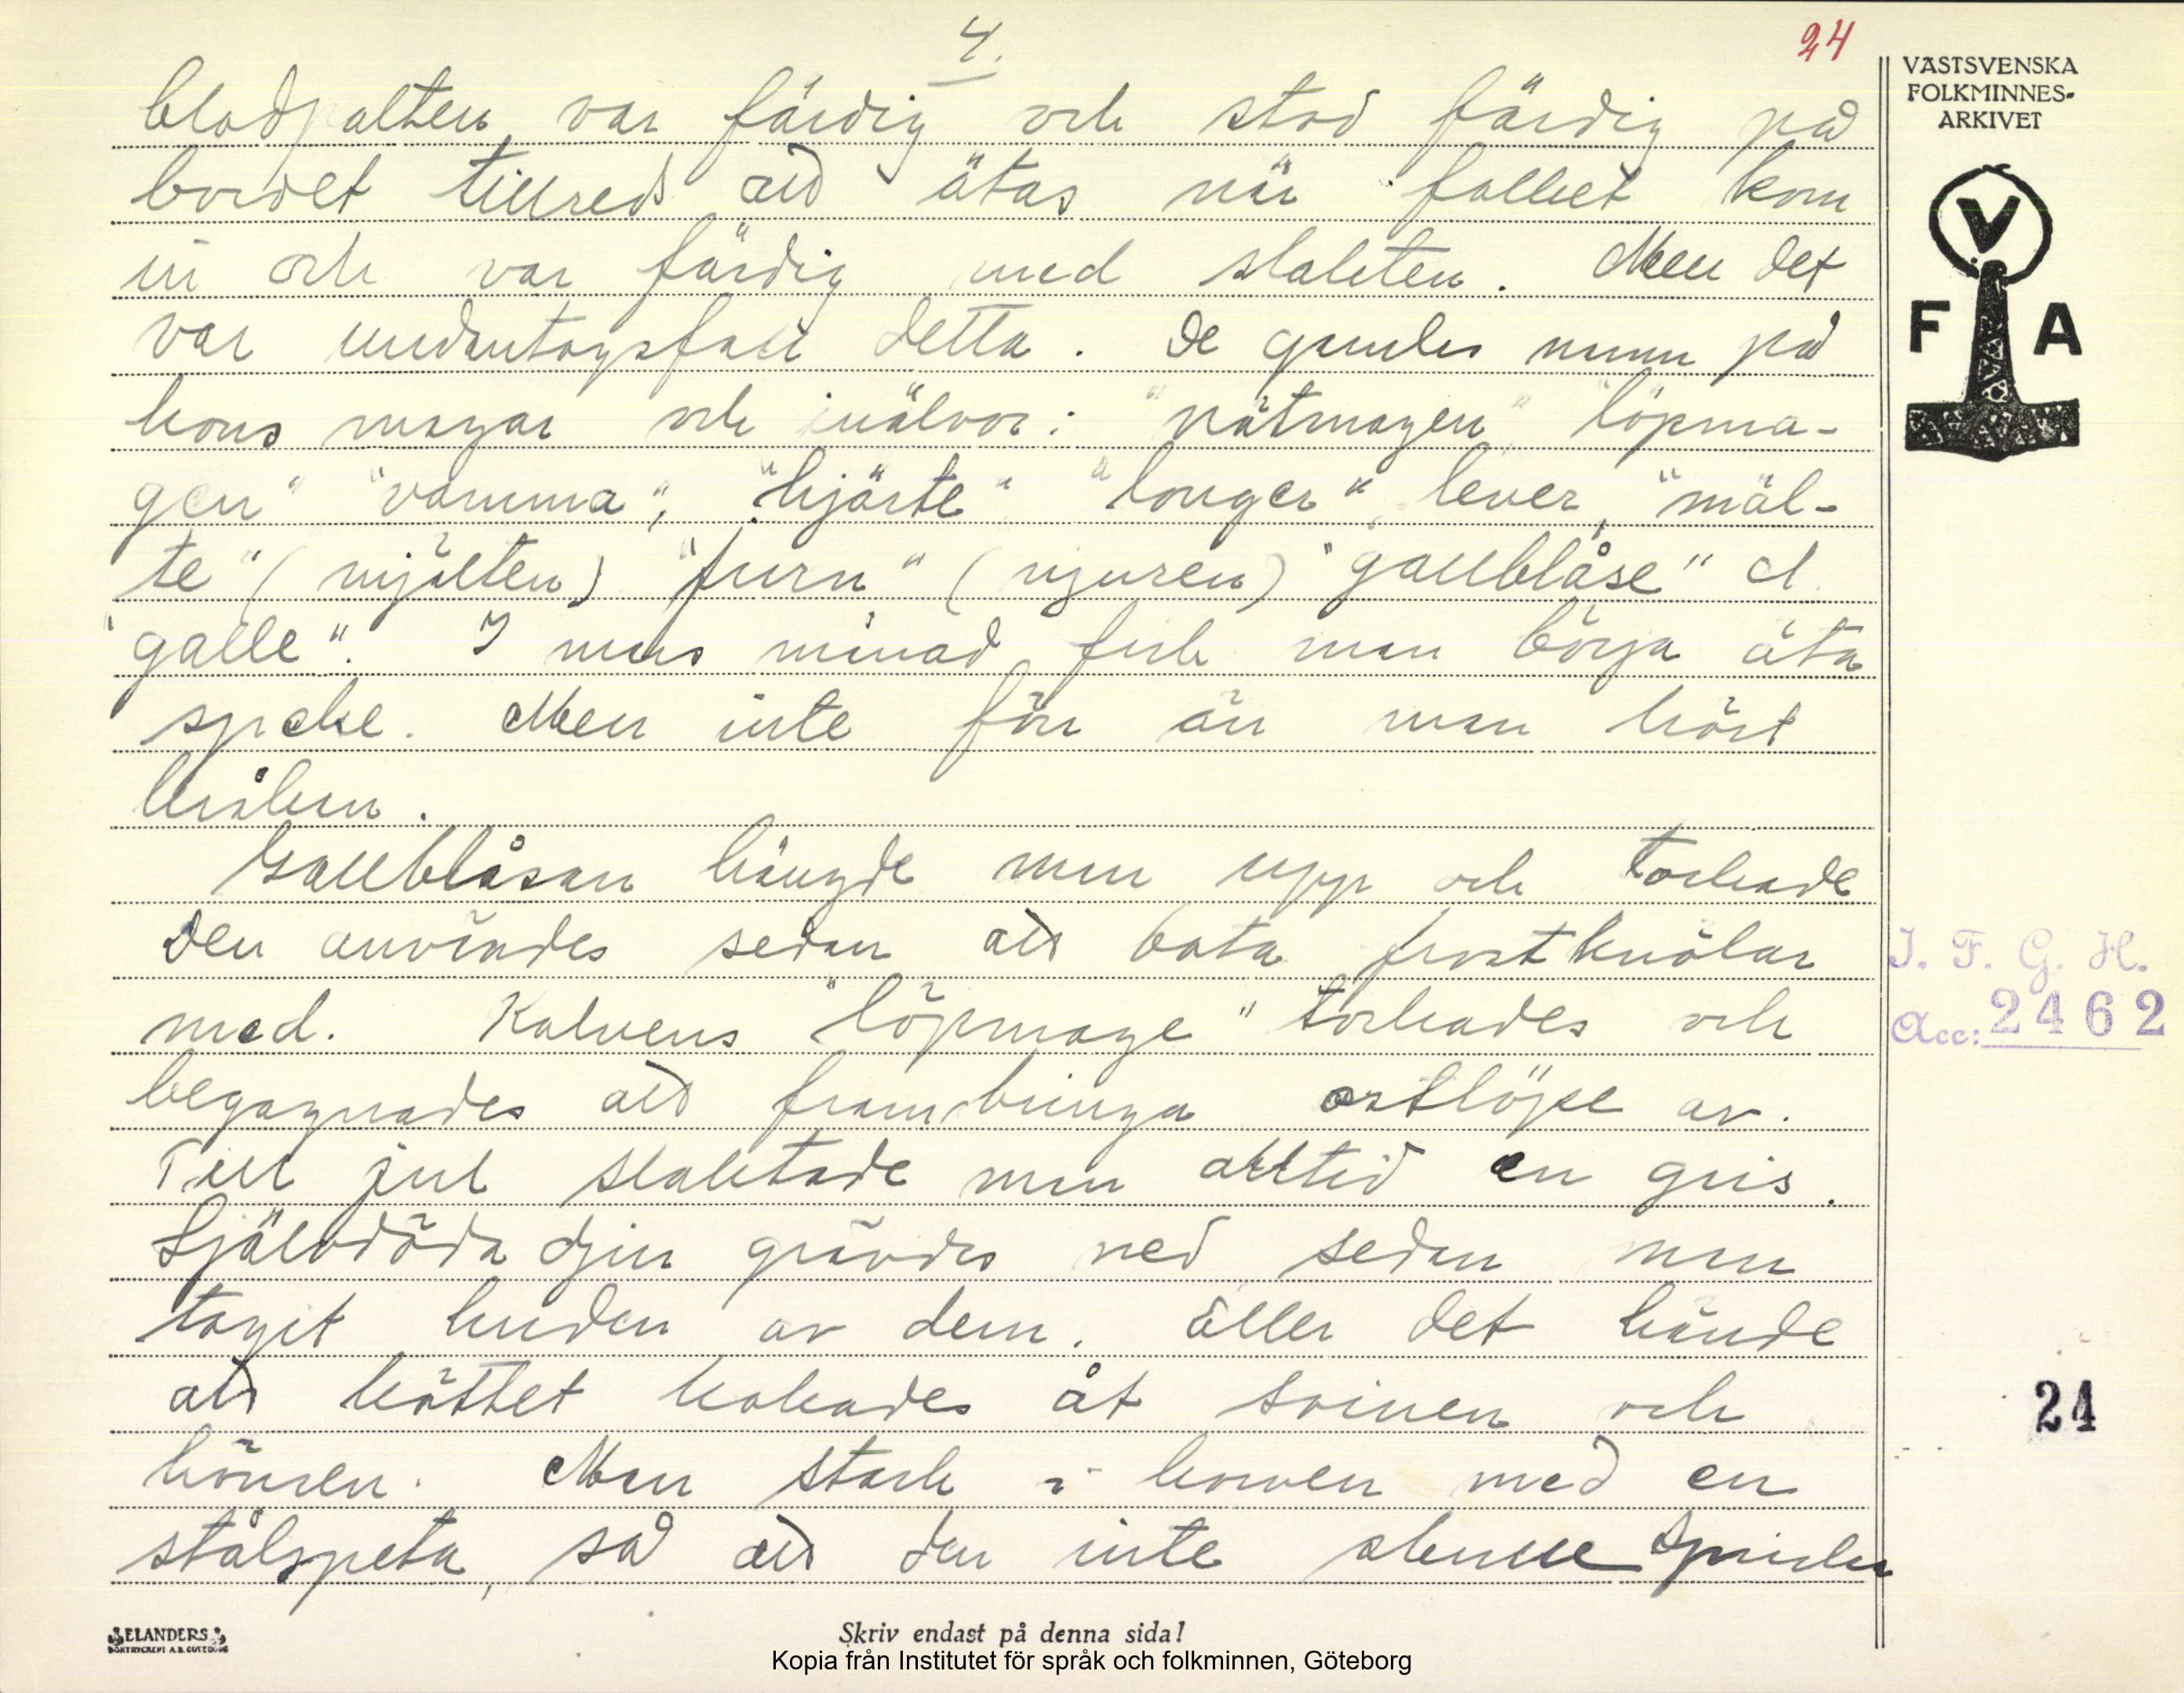 4.
24
VÄSTSVENSKA
FOLKMINNES-
ARKIVET
V
F A
blodpalten var färdig och stod färdig på
bordet tillreds att ätas när folket kom
in och var färdig med slakten. Men det
var undantagsfall detta. De gamles namn på
kons magar och inälvor: "nätmagen" "löpma-
gen" "vamma", "hjärte" "longer" lever, "mäl-
te" (mjälten) "furn" (njuren) "gallblåse" el
"galle". I mars månad fick man börja äta
speke. Men inte förr än man hört
kråkan.
Gallblåsan hängde man upp och torkade
Den användes sedan att bota frostknölar
med. Kalvens "löpmage" torkades och
begagnades att frambringa ostlöpe av.
Till jul slaktade man alltid en gris.
Självdöda djur grävdes ned sedan man
tagit huden av dem. Eller det hände
att köttet kokades åt svinen och
hönsen. Man stack i korven med en
stålspeta, så att den inte skulle spricka
J. F. G. H.
Acc: 2462
24
ELANDERS
BOKTRYCKERI A.B. GÖTEBORG
Skriv endast på denna sida!
Kopia från Institutet för språk och folkminnen, Göteborg